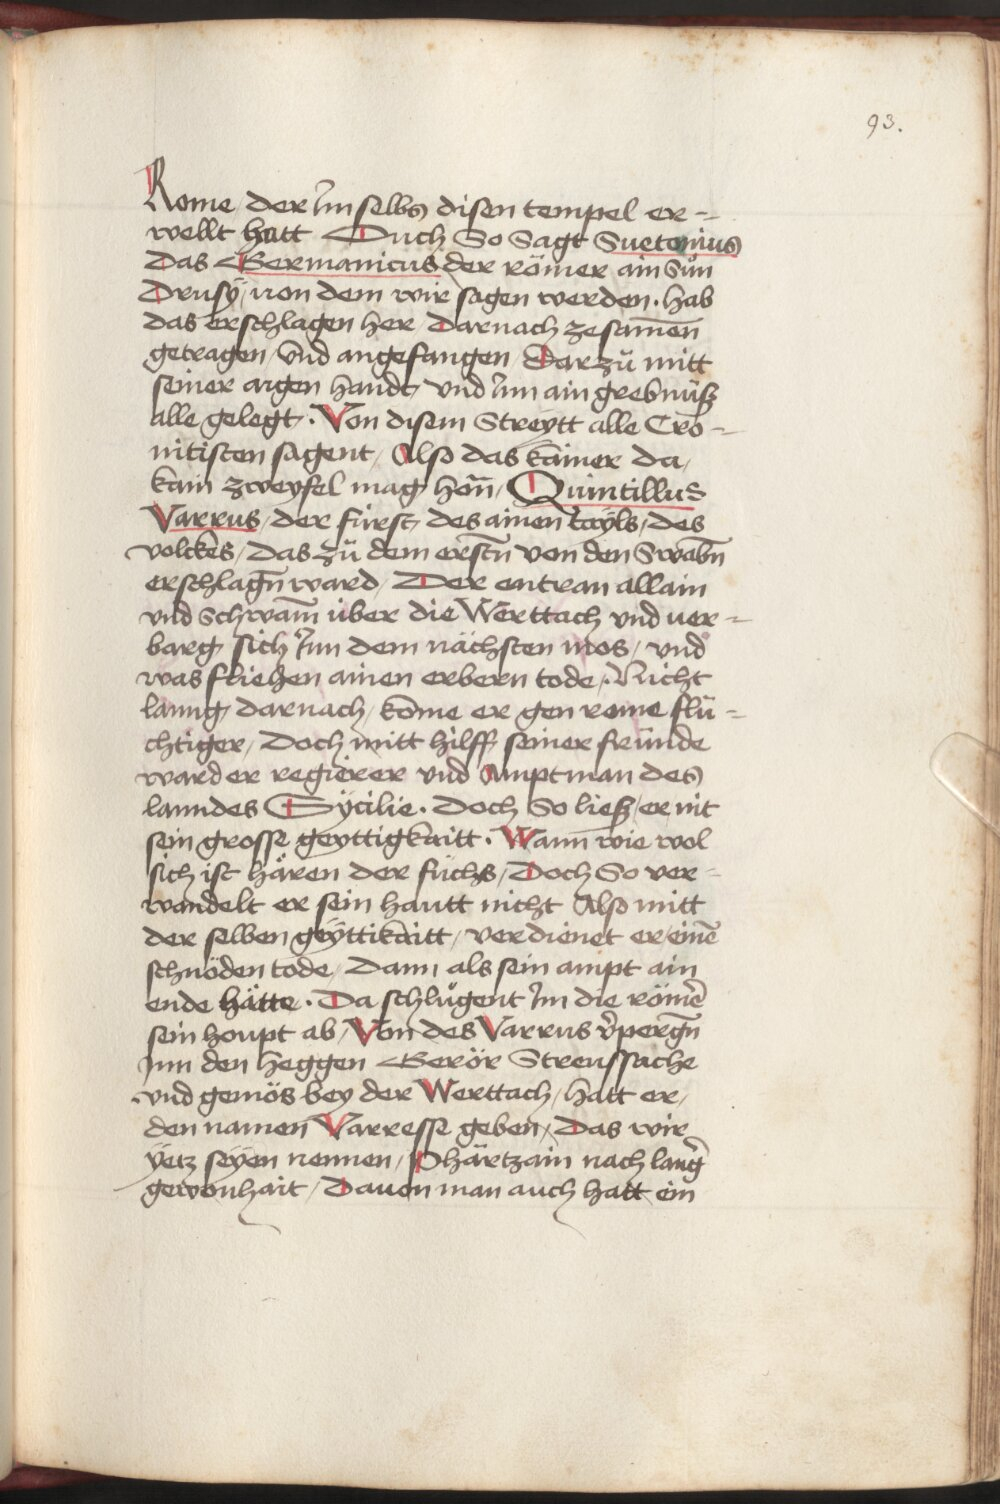 93.
Rome / der Jm selbs disen tempel er-
wellt hatt Ouch So Sagt Suetonius
Das Germanicus der römer ain Sün
Drusÿ / von dem wir sagen werden . hab
das erschlagen her / Darnach zesamen
getragen / vnd angefangen / Darzů mitt
seiner aigen handt / vnd Jnn ain grebnüß
alle gelegt . Von disem Streytt alle Cro-
nitisten sagent / Also das kainer da /
kain zweyfel mag hon̄ / Quintillus
Varrus / der fürst / des ainen tayls / des
volckes / das zů dem erstn̄ von den Swabn̄
erschlagn̄ ward / Der entran allain
vnd Schwam̄ über die Werttach vnd ver-
barg sich Jnn dem nächsten mos / vnd
was fliehen ainen erbern tode / . Nicht
lanng darnach / kome er gen rome flü-
chtiger / Doch mitt hilff seiner freunde
ward er regierer vnd Amptman des
lanndes Sÿcilie . Doch So ließ er nit
sein grosse geyttigkaitt . Wann wie wol
sich ist hären der füchs / Doch So ver-
wandelt er sein hautt nicht Also mitt
der selben geÿttikaitt / verdienet er einē
schnöden tode / Dann als sein ampt ain
ende hätte . Da schlůgent Jm die römē
sein houpt ab / Von des Varrus v̄pergn̄
Jnn den heggen Gerör Streussache
vnd gemös bey der Werttach / hatt er /
den namen Varresse geben / Das wir
yetz seyen nennen / Phärtzain nach lanḡ
gewonhait / Dauon man auch hatt ein